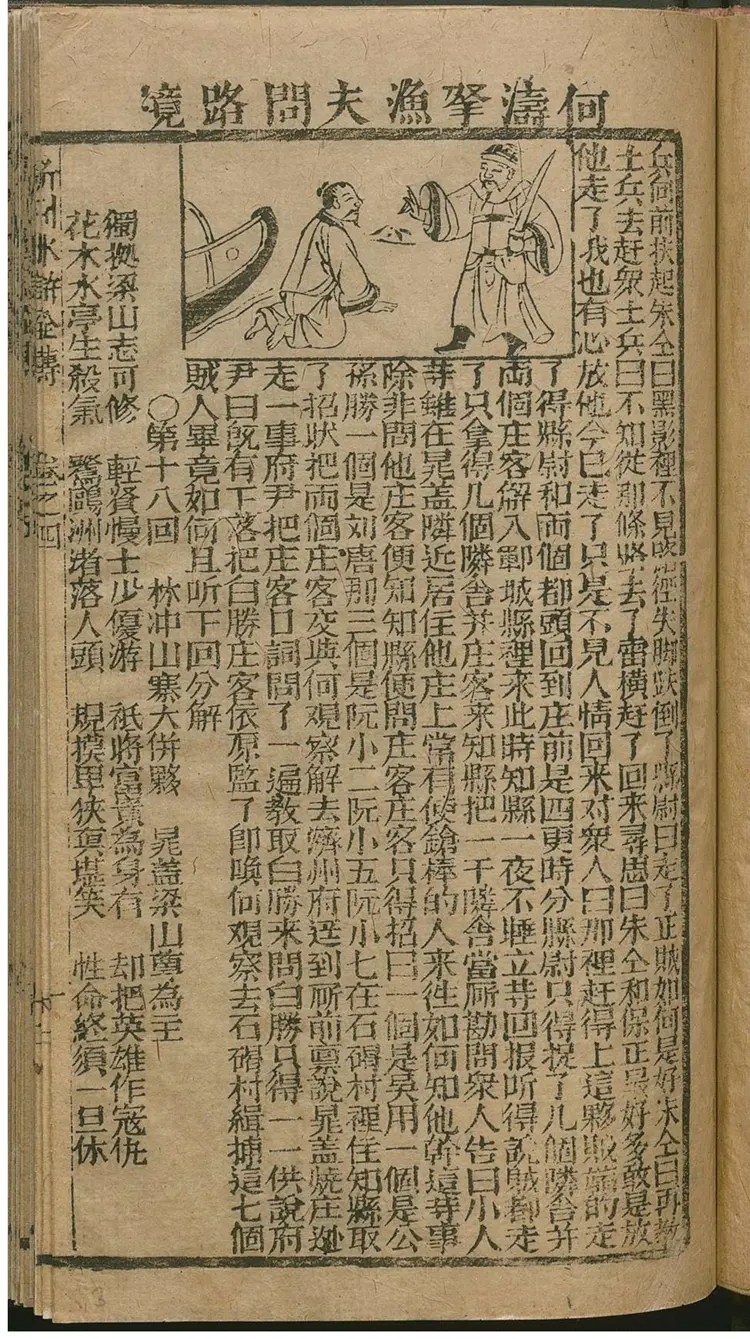 何濤拏漁夫問路境
兵向前扶起朱仝曰黑影裡不見路徑失脚跌倒了縣尉曰走了正賊如何是好朱仝曰再教
士兵去赶衆士兵曰不知從那條路去了雷橫赶了回来尋思曰朱仝和保正最好多敢是放
他走了我也有心放他今已走了只是不見人情回来对衆人曰那裡赶得上這夥賊前的走
了得縣尉和両個都頭回到庄前是四更時分縣尉只得捉了几個隣舍并
両個庄客解入鄆城縣裡来此時知縣一夜不睡立䓁回报听得說賊都走
了只拿得几個隣舍并庄客来知縣把一干隣舍當厛勘問衆人告曰小人
䓁雖在晁盖隣近居住他庄上當有使鎗棒的人来徃如何知他幹這䓁事
除非問他庄客便知知縣便問庄客庄客只得招曰一個是吴用一個是公
孫勝一個是刘唐那三個是阮小二阮小五阮小七在石碣村裡住知縣取
了招状把両個庄客交與何观察解去濟州府迳到厛前禀說晁盖燒庄逊
走一事府尹把庄客口詞問了一遍教取白勝来問白勝只得一一供說府
尹曰旣有下落把白勝庄客依原監了即喚何观察去石碣村緝捕這七個
賊人畢竟如何且听下回分解
○第十八回 林冲山寨大併夥 晁盖梁山尊為主
獨拠梁山志可修 輕賢慢士少優游 祇將富貴為身有 却把英雄作冦仇
花木水亭生殺氣 鷺鷗洲渚落人頭 規摸卑狹真堪笑 性命終須一旦休
新刊水滸全傳 卷之四